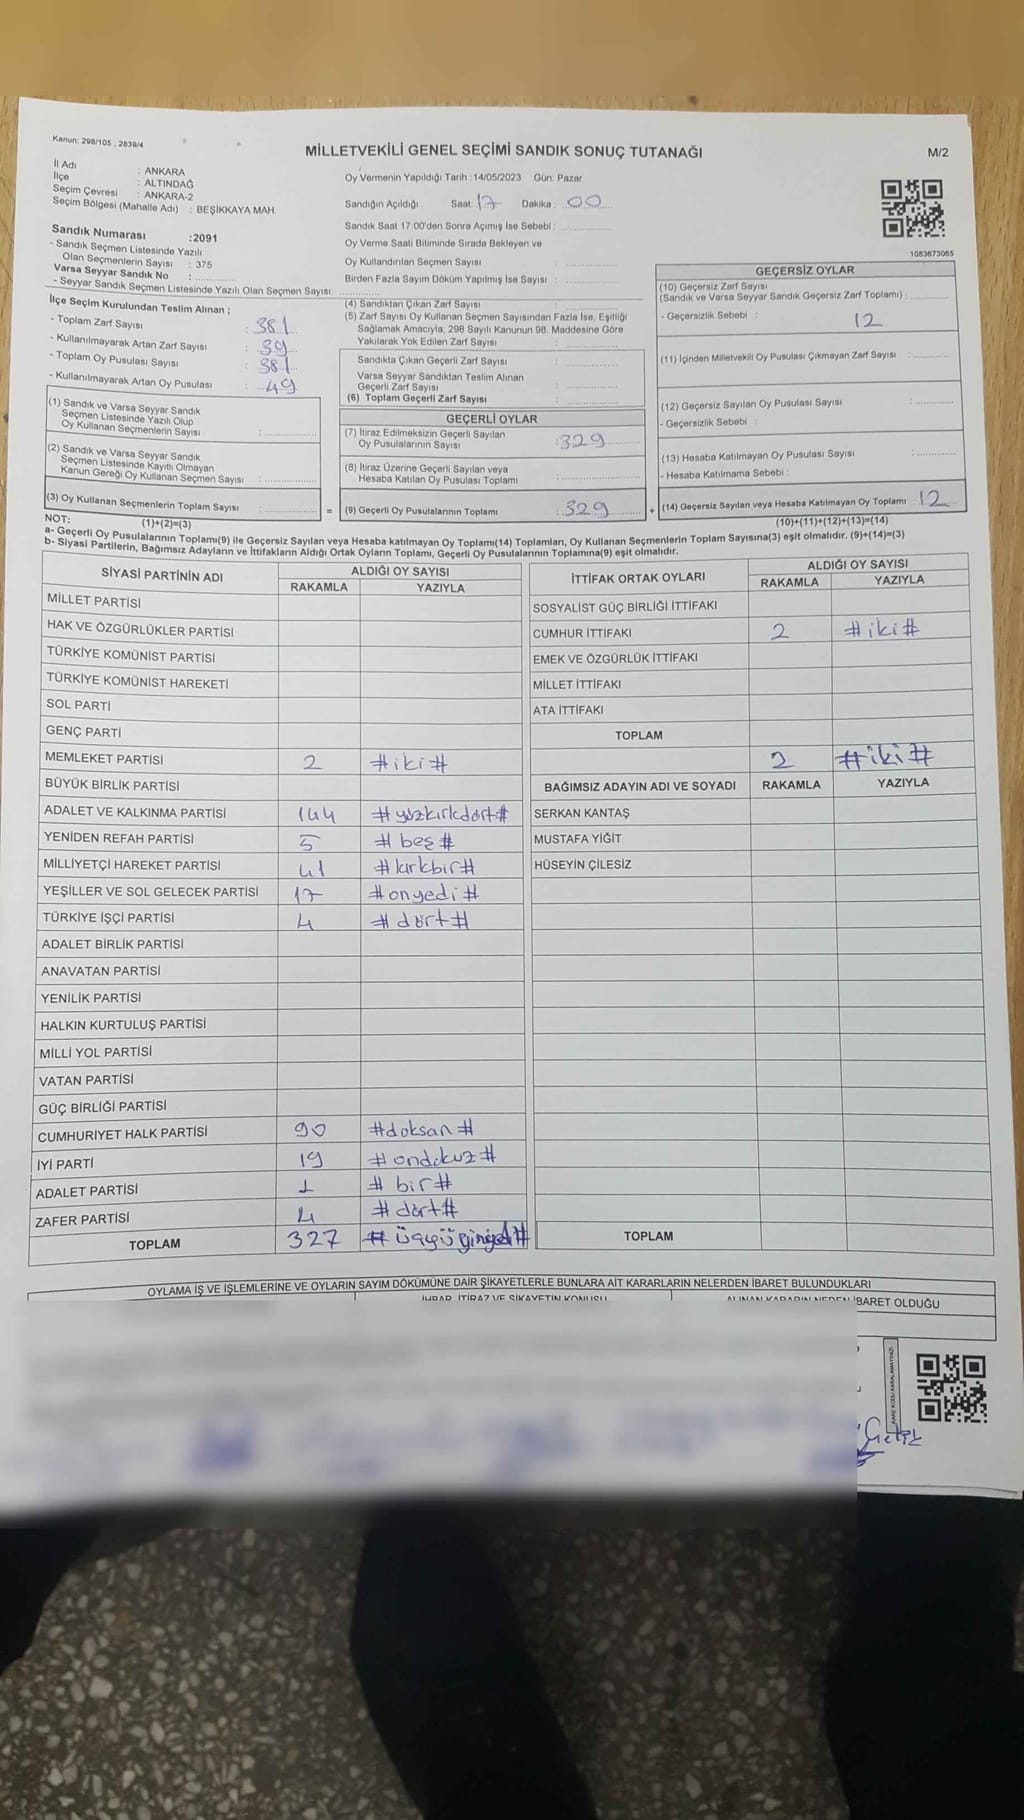 Kanun: 298/105 , 2839/4
MİLLETVEKİLİ GENEL SEÇİMİ SANDIK SONUÇ TUTANAĞI
M/2
İl Adı : ANKARA
İlçe : ALTINDAĞ
Seçim Çevresi : ANKARA-2
Seçim Bölgesi (Mahalle Adı) : BEŞİKKAYA MAH.
Sandık Numarası :2091
- Sandık Seçmen Listesinde Yazılı
Olan Seçmenlerin Sayısı : 375
Varsa Seyyar Sandık No :
- Seyyar Sandık Seçmen Listesinde Yazılı Olan Seçmen Sayısı:
Oy Vermenin Yapıldığı Tarih :14/05/2023 Gün: Pazar
Sandığın Açıldığı Saat: 17 Dakika : 00
Sandık Saat 17:00'den Sonra Açımış İse Sebebi :
Oy Verme Saati Bitiminde Sırada Bekleyen ve
Oy Kullandırılan Seçmen Sayısı :
Birden Fazla Sayım Döküm Yapılmış İse Sayısı :
1083673065
İlçe Seçim Kurulundan Teslim Alınan ;
- Toplam Zarf Sayısı : 381
- Kullanılmayarak Artan Zarf Sayısı : 39
- Toplam Oy Pusulası Sayısı : 381
- Kullanılmayarak Artan Oy Pusulası : 49
(1) Sandık ve Varsa Seyyar Sandık
Seçmen Listesinde Yazılı Olup
Oy Kullanan Seçmenlerin Sayısı :
(2) Sandık ve Varsa Seyyar Sandık
Seçmen Listesinde Kayıtlı Olmayan
Kanun Gereği Oy Kullanan Seçmen Sayısı :
(3) Oy Kullanan Seçmenlerin Toplam Sayısı :
(1)+(2)=(3)
=
(4) Sandıktan Çıkan Zarf Sayısı :
(5) Zarf Sayısı Oy Kullanan Seçmen Sayısından Fazla İse, Eşitliği
Sağlamak Amacıyla; 298 Sayılı Kanunun 98. Maddesine Göre
Yakılarak Yok Edilen Zarf Sayısı :
Sandıkta Çıkan Geçerli Zarf Sayısı :
Varsa Seyyar Sandıktan Teslim Alınan
Geçerli Zarf Sayısı :
(6) Toplam Geçerli Zarf Sayısı :
GEÇERLİ OYLAR
(7) İtiraz Edilmeksizin Geçerli Sayılan
Oy Pusulalarının Sayısı : 329
(8) İtiraz Üzerine Geçerli Sayılan veya
Hesaba Katılan Oy Pusulası Toplamı :
(9) Geçerli Oy Pusulalarının Toplamı : 329
+
GEÇERSİZ OYLAR
(10) Geçersiz Zarf Sayısı
(Sandık ve Varsa Seyyar Sandık Geçersiz Zarf Toplamı) :
- Geçersizlik Sebebi : 12
(11) İçinden Milletvekili Oy Pusulası Çıkmayan Zarf Sayısı :
(12) Geçersiz Sayılan Oy Pusulası Sayısı :
- Geçersizlik Sebebi :
(13) Hesaba Katılmayan Oy Pusulası Sayısı :
- Hesaba Katılmama Sebebi :
(14) Geçersiz Sayılan veya Hesaba Katılmayan Oy Toplamı : 12
(10)+(11)+(12)+(13)=(14)
NOT:
a- Geçerli Oy Pusulalarının Toplamı(9) ile Geçersiz Sayılan veya Hesaba katılmayan Oy Toplamı(14) Toplamları, Oy Kullanan Seçmenlerin Toplam Sayısına(3) eşit olmalıdır. (9)+(14)=(3)
b- Siyasi Partilerin, Bağımsız Adayların ve İttifakların Aldığı Ortak Oyların Toplamı, Geçerli Oy Pusulalarının Toplamına(9) eşit olmalıdır.
SİYASİ PARTİNİN ADI ALDIĞI OY SAYISI
RAKAMLA YAZIYLA
MİLLET PARTİSİ
HAK VE ÖZGÜRLÜKLER PARTİSİ
TÜRKİYE KOMÜNİST PARTİSİ
TÜRKİYE KOMÜNİST HAREKETİ
SOL PARTİ
GENÇ PARTİ
MEMLEKET PARTİSİ 2 #iki#
BÜYÜK BİRLİK PARTİSİ
ADALET VE KALKINMA PARTİSİ 144 #yüzkırkdört#
YENİDEN REFAH PARTİSİ 5 #beş#
MİLLİYETÇİ HAREKET PARTİSİ 41 #kırkbir#
YEŞİLLER VE SOL GELECEK PARTİSİ 17 #onyedi#
TÜRKİYE İŞÇİ PARTİSİ 4 #dört#
ADALET BİRLİK PARTİSİ
ANAVATAN PARTİSİ
YENİLİK PARTİSİ
HALKIN KURTULUŞ PARTİSİ
MİLLİ YOL PARTİSİ
VATAN PARTİSİ
GÜÇ BİRLİĞİ PARTİSİ
CUMHURİYET HALK PARTİSİ 90 #doksan#
İYİ PARTİ 19 #ondokuz#
ADALET PARTİSİ 1 #bir#
ZAFER PARTİSİ 4 #dört#
TOPLAM 327
İTTİFAK ORTAK OYLARI ALDIĞI OY SAYISI
RAKAMLA YAZIYLA
SOSYALİST GÜÇ BİRLİĞİ İTTİFAKI
CUMHUR İTTİFAKI 2 #iki#
EMEK VE ÖZGÜRLÜK İTTİFAKI
MİLLET İTTİFAKI
ATA İTTİFAKI
TOPLAM 2 #iki#
BAĞIMSIZ ADAYIN ADI VE SOYADI RAKAMLA YAZIYLA
SERKAN KANTAŞ
MUSTAFA YİĞİT
HÜSEYİN ÇİLESİZ
TOPLAM
OYLAMA İŞ VE İŞLEMLERİNE VE OYLARIN SAYIM DÖKÜMÜNE DAİR ŞİKAYETLERLE BUNLARA AİT KARARLARIN NELERDEN İBARET BULUNDUKLARI
İHBAR, İTİRAZ VE ŞİKAYETİN KONUSU
ALINAN KARARIN NEDEN İBARET OLDUĞU
KARE KODU KARALAMAYINIZ!